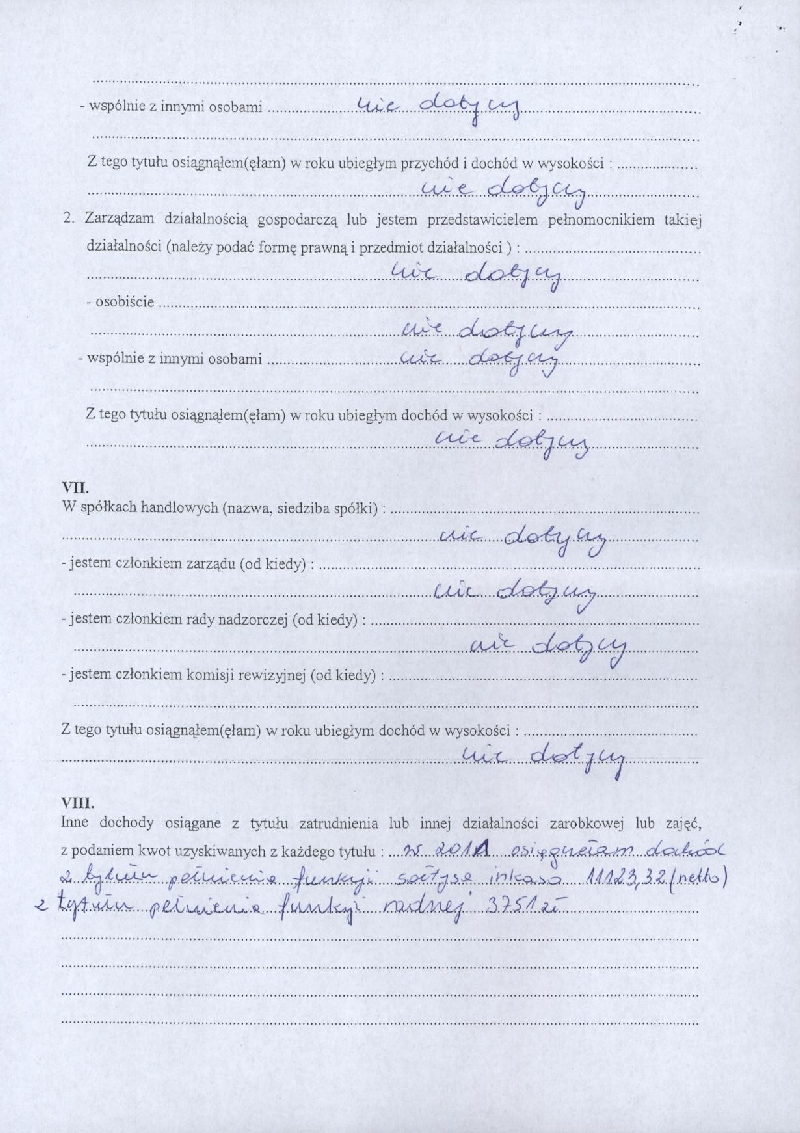 - wspólnie z innymi osobami ........ nie dotyczy
Z tego tytułu osiągnąłem(ęłam) w roku ubiegłym przychód i dochód w wysokości : ........
nie dotyczy
2. Zarządzam działalnością gospodarczą lub jestem przedstawicielem pełnomocnikiem takiej
działalności (należy podać formę prawną i przedmiot działalności ) : ........
nie dotyczy
- osobiście ........
nie dotyczy
- wspólnie z innymi osobami ........ nie dotyczy
Z tego tytułu osiągnąłem(ęłam) w roku ubiegłym dochód w wysokości : ........
nie dotyczy
VII.
W spółkach handlowych (nazwa, siedziba spółki) : ........
nie dotyczy
- jestem członkiem zarządu (od kiedy) : ........
nie dotyczy
- jestem członkiem rady nadzorczej (od kiedy) : ........
nie dotyczy
- jestem członkiem komisji rewizyjnej (od kiedy) : ........
Z tego tytułu osiągnąłem(ęłam) w roku ubiegłym dochód w wysokości : ........
nie dotyczy
VIII.
Inne dochody osiągane z tytułu zatrudnienia lub innej działalności zarobkowej lub zajęć,
z podaniem kwot uzyskiwanych z każdego tytułu : w 2011 osięgnełam dochód
z tytułu pełnienia funkcji sołtysa inkaso 11123,32 (netto)
z tytułu pełnienia funkcji radnej 3751 zł